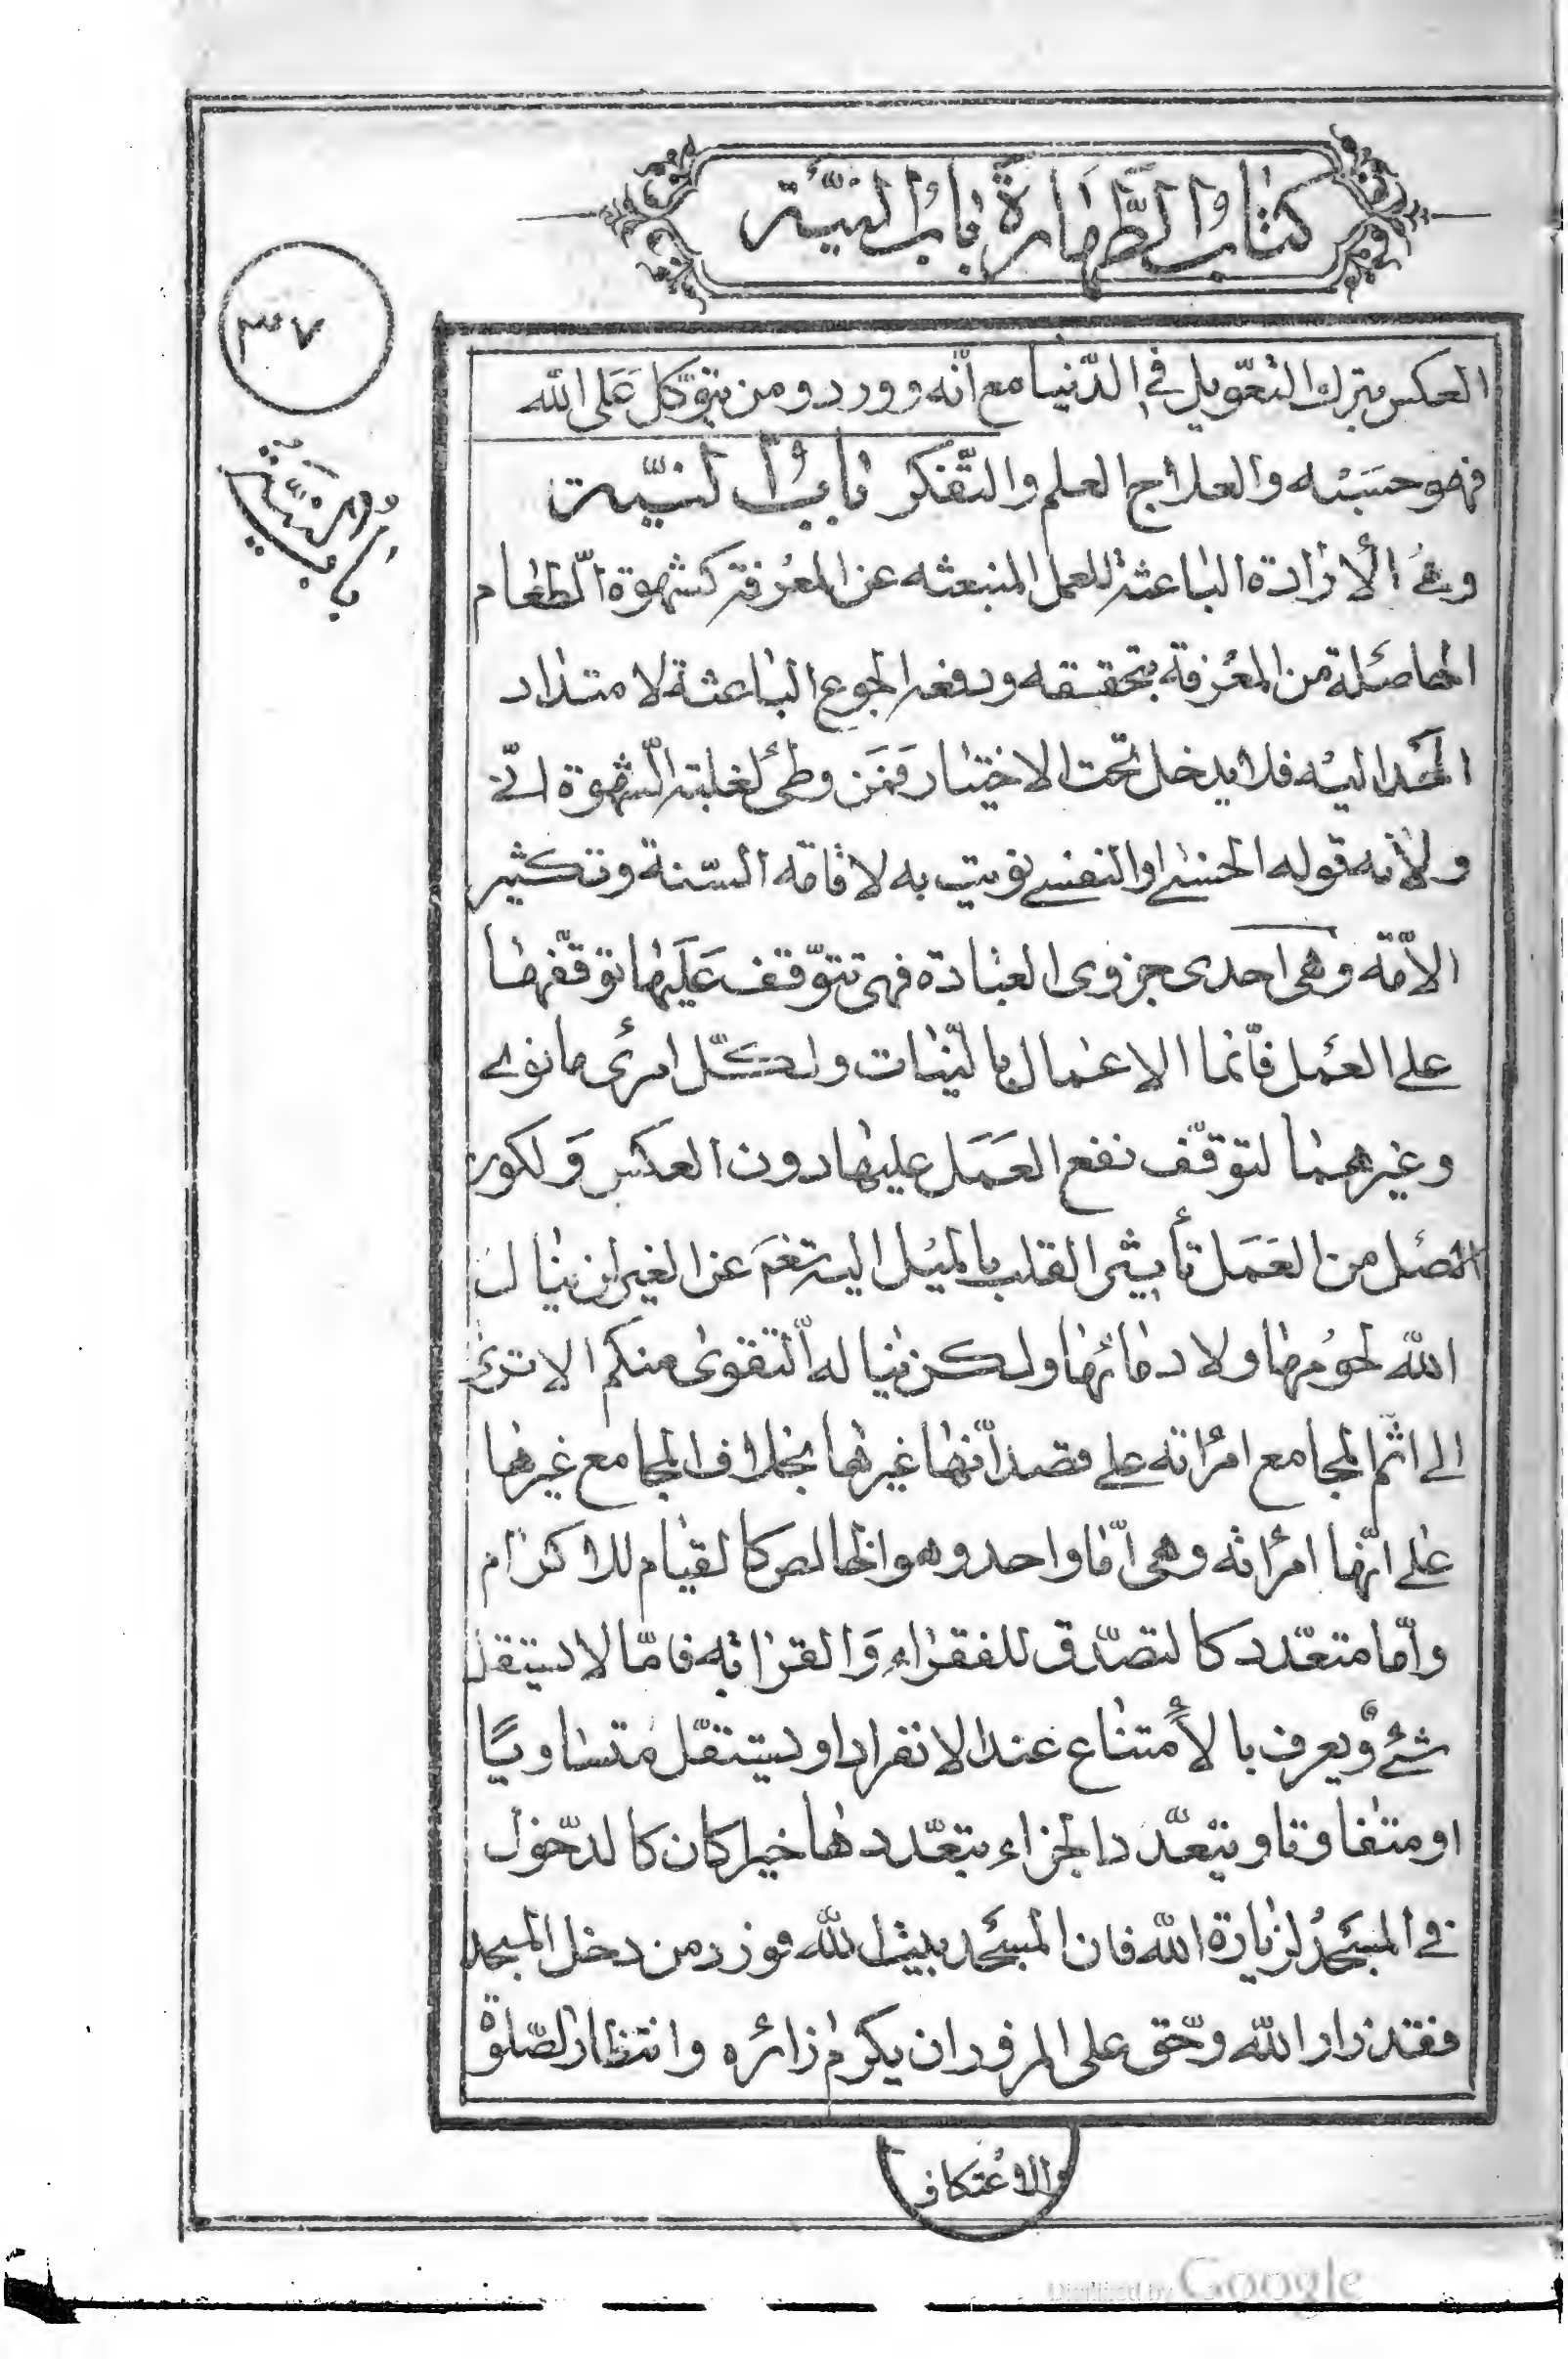 كتاب الطّهارة باب النيّة
٣٧
باب النيّة
العكس بترك التعّويل في الدّنيا مع انّه وورد ومن يتوّكل عَلى الله
فهو حسَبُه والعلاج العلم والتّفكر باب النيّة
وهي الأرادة الباعثة للعمل المنبعثه عن المعرفة كشهوة الّطعام
الحاصلة من المعرفة بتحققه ودفعه الجوع الباعثة لامتداد
اليه فلا يدخل تحت الاختيار فمَن وطئ لغلبة الّشهوة انّي
ولأنه قوله الحسي او النفسي نويت به لاقامة السّنة وتكثير
الامّة وهي احدى جزوى العبادة فهي تتوّقف عَلَيها توقّفها
على العمل فأنّما الاعمال باليّنات ولكّل امرئ ما نوى
وغيرهما لتوقّف نفع العَمَل عليها دون العكس وَلكون
من العَمَل تأثير القلب بالميل اليه تغم عن الغير لن ينال
الله لحومها ولا دمائها ولكن يناله الّتقوى منكم الا ترى
الى اثم المجامع امرأته على قصد انّها غيرها بخلاف المجامع غيرها
على انّها امرأته وهي امّا واحد وهو الخالص كالقيام للاكرام
وامّا متعّدد كالتصّدق للفقراء وَالقرابه فامّا لا يستقل
شئ ويعرف بالأمتناع عند الانفراد او يستقّل متساويًا
او متفاوتا ويتعّدد الجزاء بتعّددها خيرا كان كالدخول
في المسجد لزيارة الله فان المسجد بيت الله فورد من دخل المسجد
فقد زار الله وحّق على المزور ان يكرم زائره وانتظار الصّلوة
والاعتكاف
Digitized by Google